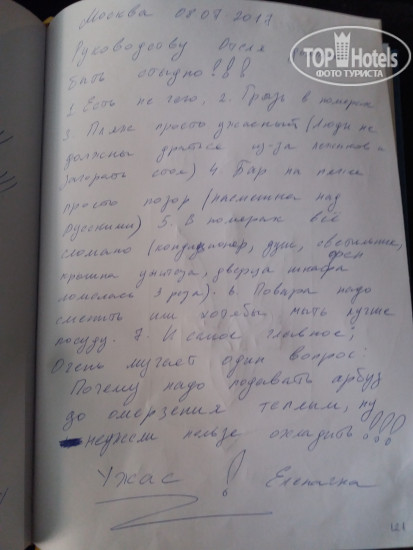 Москва 08.07.2017
TOPHotels
ФОТО ТУРИСТА
Руководству Отеля
Быть стыдно!!!
1. Есть не чего, 2. Грязь в номерах
3. Пляж просто ужасный (люди не
должны драться из-за лежаков и
загорать стоя) 4. Бар на пляже
просто позор (насмешка над
русскими) 5. В номерах всё
сломано (кондиционер, душ, светильник, фен
крышка унитаза, дверца шкафа
ломалась 3 раза). 6. Повара надо
сменить или хотябы, мыть лучше
посуду. 7. И самое главное,
Очень мучает один вопрос:
Почему надо подавать арбуз
до омерзения теплым, ну
неужели нельзя охладить!!!
Ужас !